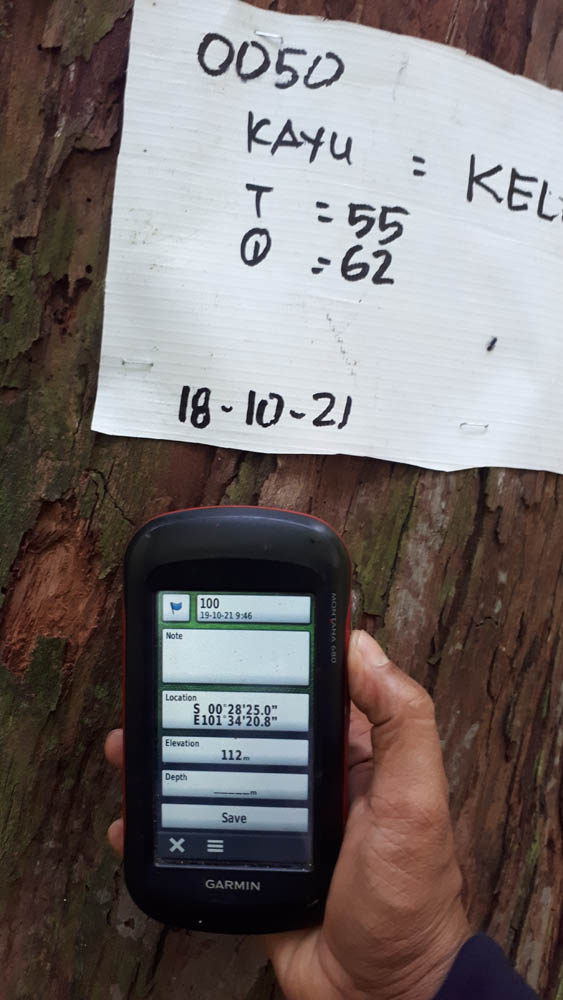 0050
KAYU = KEL
T = 55
Ⓘ = 62
18-10-21
MONTANA 680
100
19-10-21 9:46
Note
Location
S 00°28'25.0"
E101°34'20.8"
Elevation
112m
Depth
_____m
Save
GARMIN